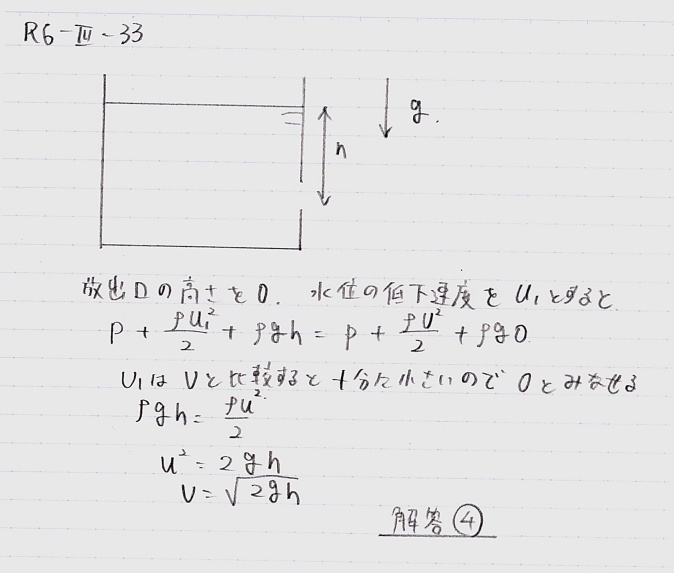 R6-Ⅲ-33
g.
h
放出口の高さを0. 水位の低下速度をU₁とすると
P + ρU₁²/2 + ρgh = P + ρU²/2 + ρg0
U₁はUと比較すると十分に小さいので0とみなせる
ρgh = ρU²/2
U² = 2gh
U = √2gh
解答④